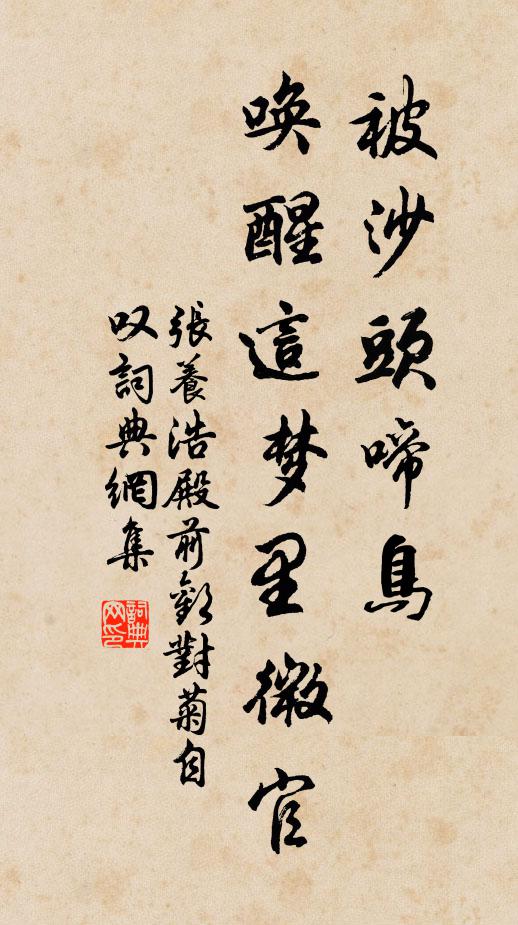 被沙頭啼鳥
唤醒這梦里微官
張養浩殿前歡對菊自
叹詞典網集
詞典
网印